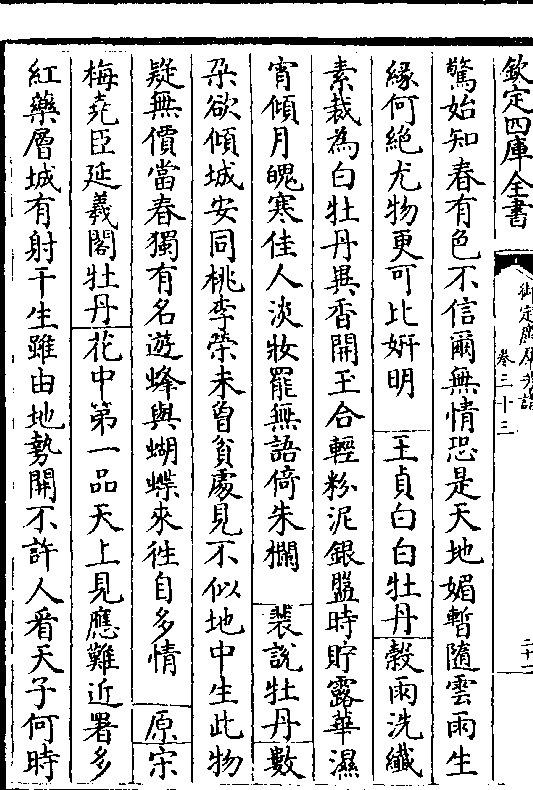 欽定四庫全書
御定廣羣芳譜
卷三十三
二十一
驚始知春有色不信爾無情恐是天地媚暫隨雲雨生
緣何絶尤物更可比姸明　王貞白白牡丹穀雨洗纎
素裁為白牡丹異香開玉合輕粉泥銀盤時貯露華濕
宵傾月魄寒佳人淡妝罷無語倚朱欄　裴說牡丹數
朶欲傾城安同桃李榮未曾貧處見不似地中生此物
疑無價當春獨有名遊蜂與蝴蝶來徃自多情　原宋
梅堯臣延義閣牡丹花中第一品天上見應難近署多
紅藥層城有射干生雖由地勢開不許人看天子何時